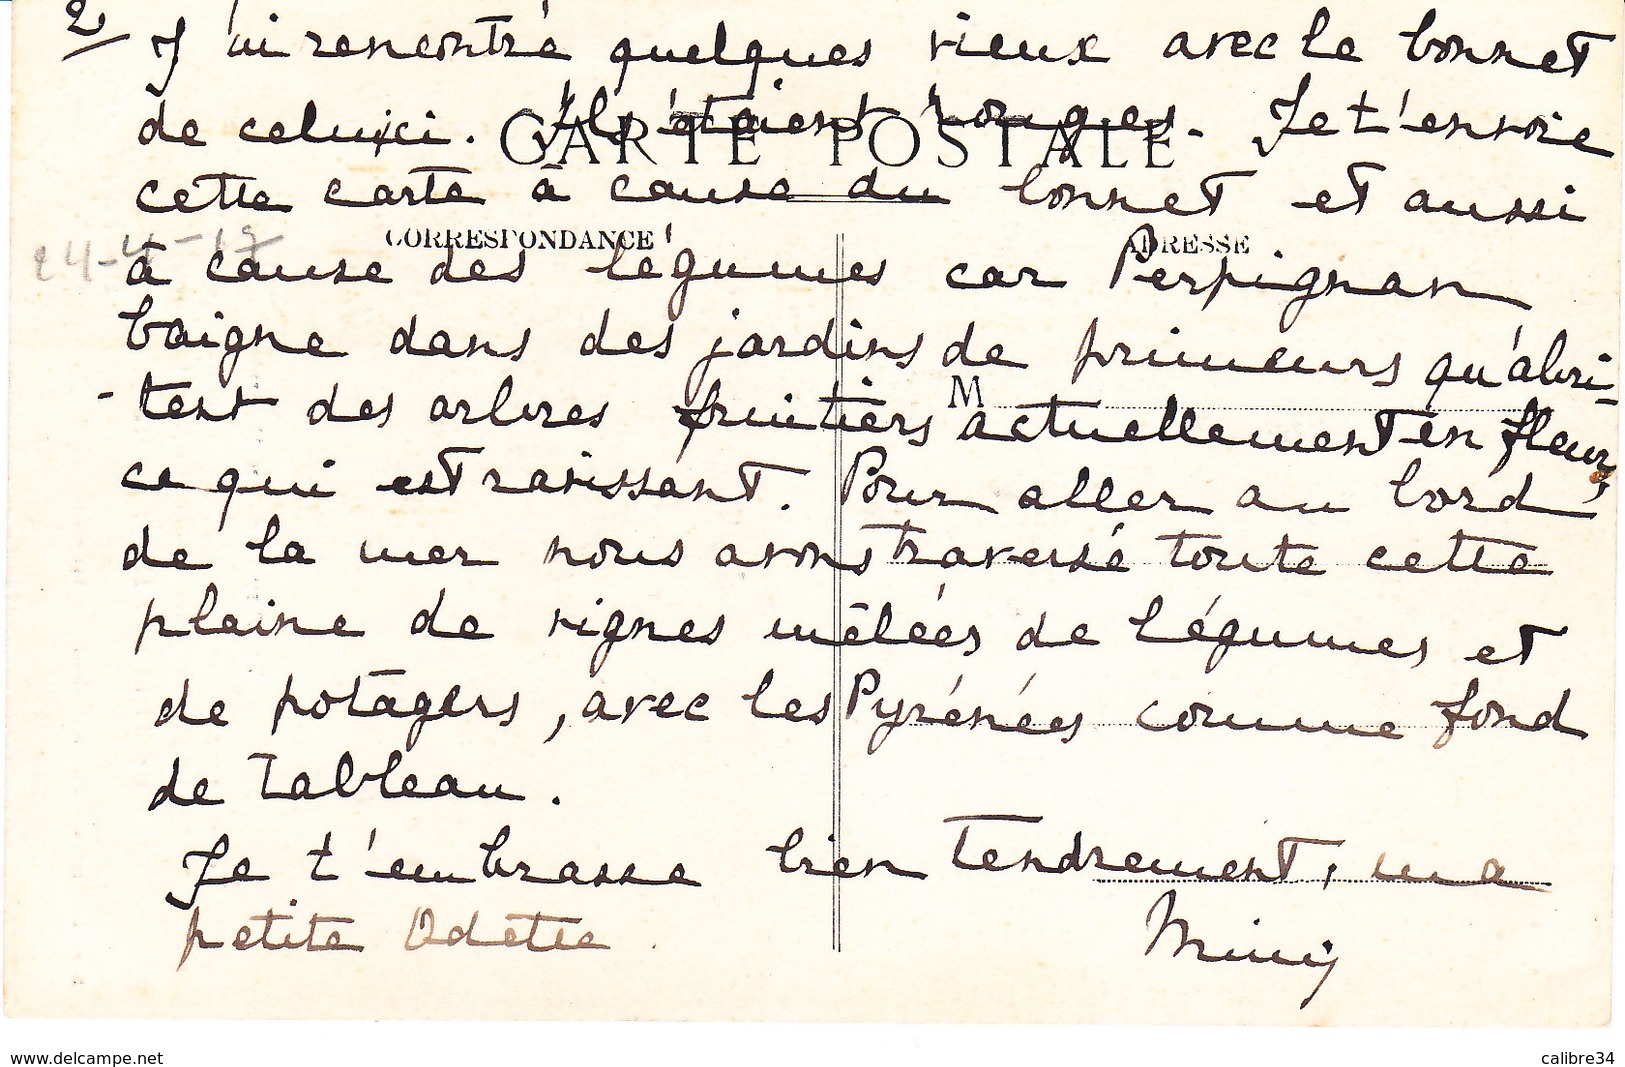 2/ J'ai rencontré quelques vieux avec le bonnet
de celui ci. Ils étaient rouges. Je t'envoie
CARTE POSTALE
cette carte à cause du bonnet et aussi
CORRESPONDANCE ADRESSE
24-4-17
à cause des légumes car Perpignan
baigne dans des jardins de primeurs qu'abri-
M
-tent des arbres fruitiers actuellement en fleurs,
ce qui est ravissant. Pour aller au bord
de la mer nous avons traversé toute cette
plaine de vignes mêlées de légumes et
de potagers, avec les Pyrénées comme fond
de tableau.
Je t'embrasse bien tendrement, ma
petite Odette.
Mimy
www.delcampe.net
calibre34